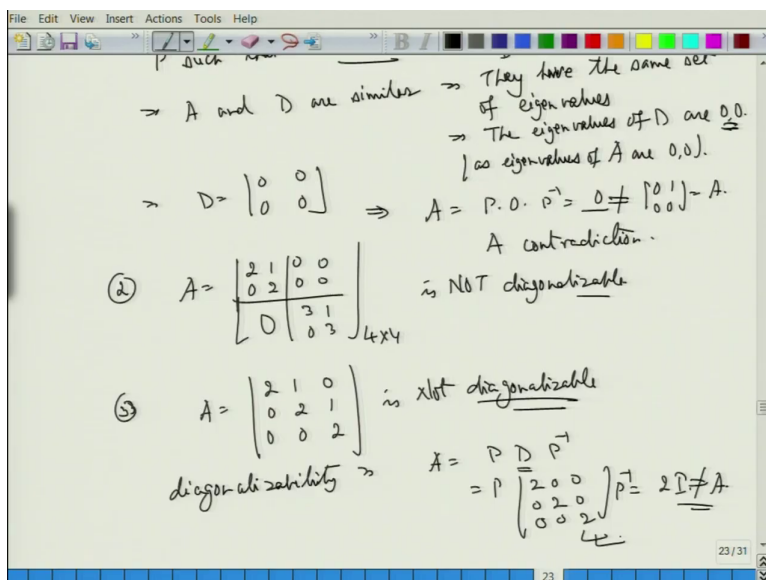 File Edit View Insert Actions Tools Help
P such that
⇒ A and D are similar ⇒ They have the same set
of eigenvalues
⇒ The eigenvalues of D are 0,0.
(as eigenvalues of A are 0,0).
⇒ D = [0 0
0 0] ⇒ A = P.0.P⁻¹ = 0 ≠ [0 1
0 0] = A.
A contradiction.
② A = [2 1 | 0 0
0 2 | 0 0
0 | 3 1
0 3] 4x4 is NOT diagonalizable
③ A = [2 1 0
0 2 1
0 0 2] is Not diagonalizable
diagonalizability ⇒ A = P D P⁻¹
= P [2 0 0
0 2 0
0 0 2] P⁻¹ = 2I ≠ A
23/31
23